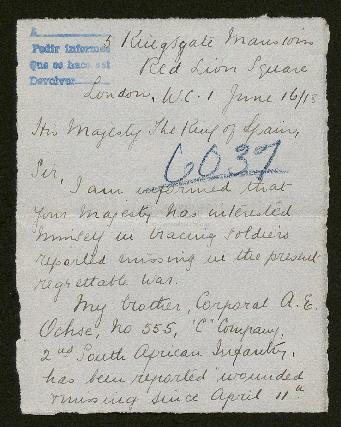 A
Pedir informes
Que se hace est
Devolver
3 Kingsgate Mansions
Red Lion Square
London, W.C. 1 June 16/18
His Majesty The King of Spain,
6037
Sir,
I am informed that
Your Majesty has interested
himself in tracing soldiers
reported missing in the present
regrettable war.
My brother, Corporal A. E.
Ochse, No 555, "C" Company,
2nd South African Infantry,
has been reported wounded
& missing since April 11th